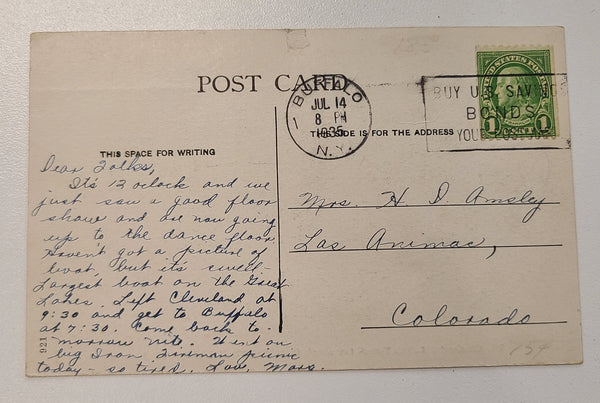 POST CARD
BUFFALO
1
JUL 14
8 PM
1935
N.Y.
BUY U.S. SAVINGS
BONDS
UNITED STATES POSTAGE
1
1
THIS SPACE FOR WRITING
THIS SIDE IS FOR THE ADDRESS
Dear Folks,
It's 12 oclock and we
just saw a good floor
show and are now going
up to the dance floor
Haven't got a picture of
boat, but it's swell—
Largest boat on the Great
Lakes. Left Cleveland at
9:30 and get to Buffalo
at 7:30. Come back to-
morrow nite. Went on
big Iron Fireman picnic
today - so tired. Love, Marg.
Mrs. H. D. Amsley
Las Animas,
Colorado
921